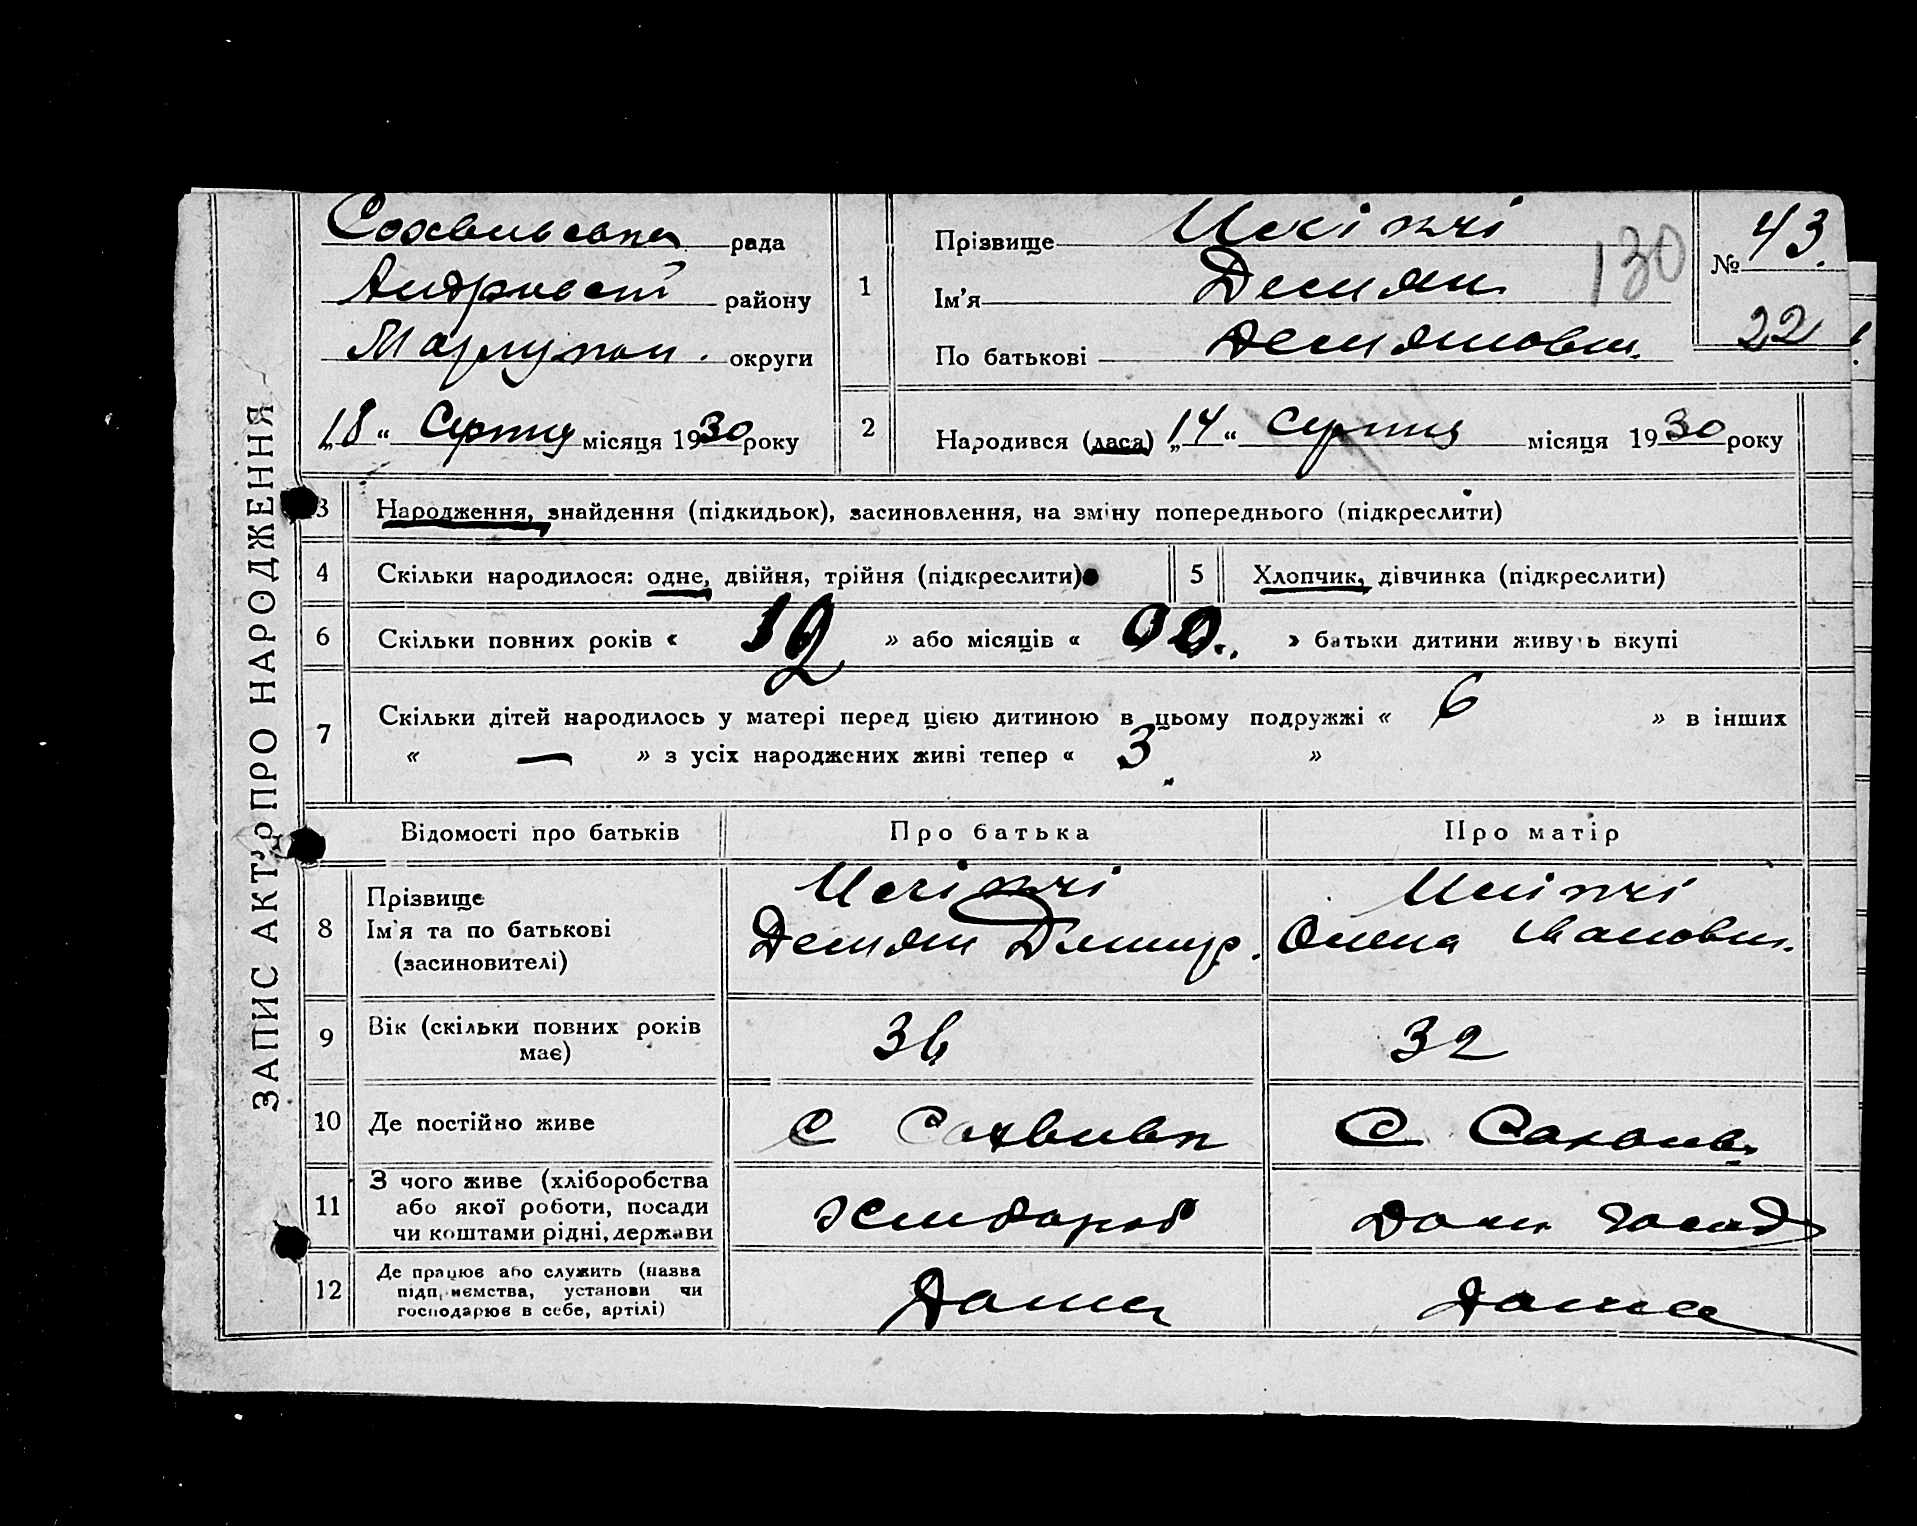 ЗАПИС АКТУ ПРО НАРОДЖЕННЯ
рада
району
Маріупол. округи
„18“ Серпня місяця 1930 року
1
Прізвище
Ім’я Демян
По батькові Демянович.
130
№ 43.
22
2
Народився (лася) „14“ Серпня місяця 1930 року
3
Народження, знайдення (підкидьок), засиновлення, на зміну попереднього (підкреслити)
4
Скільки народилося: одне, двійня, трійня (підкреслити)
5
Хлопчик, дівчинка (підкреслити)
6
Скільки повних років « 12 » або місяців « 00 » батьки дитини живуть вкупі
7
Скільки дітей народилось у матері перед цією дитиною в цьому подружжі « 6 » в інших
« — » з усіх народжених живі тепер « 3 »
Відомості про батьків
Про батька
Про матір
8
Прізвище
Ім’я та по батькові
(засиновителі)
Демян Дмитр.
Олена Івановн.
9
Вік (скільки повних років
має)
36
32
10
Де постійно живе
С
С
11
З чого живе (хліборобства
або якої роботи, посади
чи коштами рідні, держави
Хлібороб
Дом. Госпд
12
Де працює або служить (назва
підприємства, установи чи
господарює в себе, артілі)
Дома
Дома